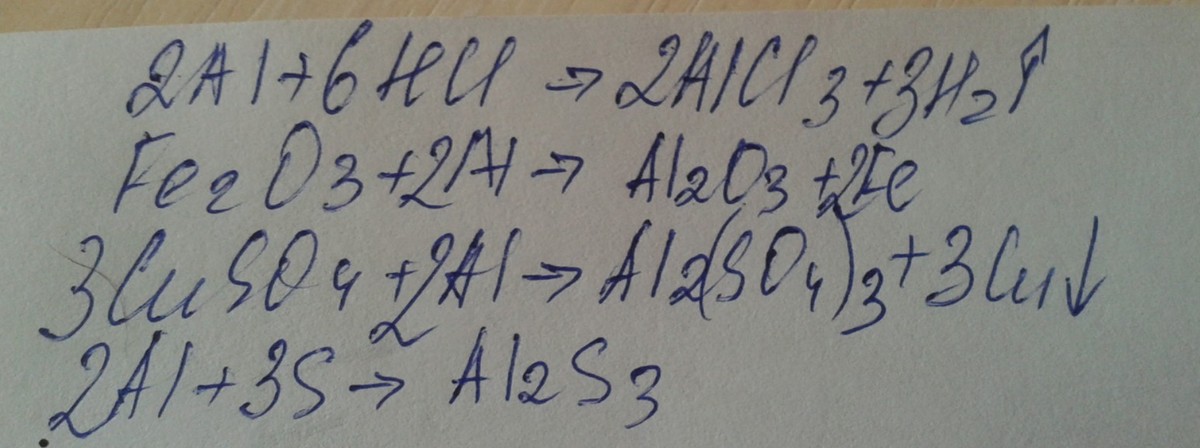 2Al+6HCl → 2AlCl3+3H2↑
Fe2O3+2Al → Al2O3+2Fe
3CuSO4+2Al → Al2(SO4)3+3Cu↓
2Al+3S → Al2S3